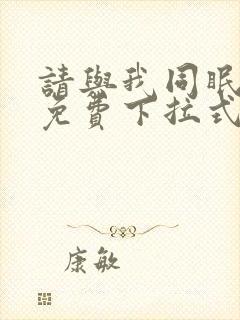 請與我同眠
免費下拉式
康敏